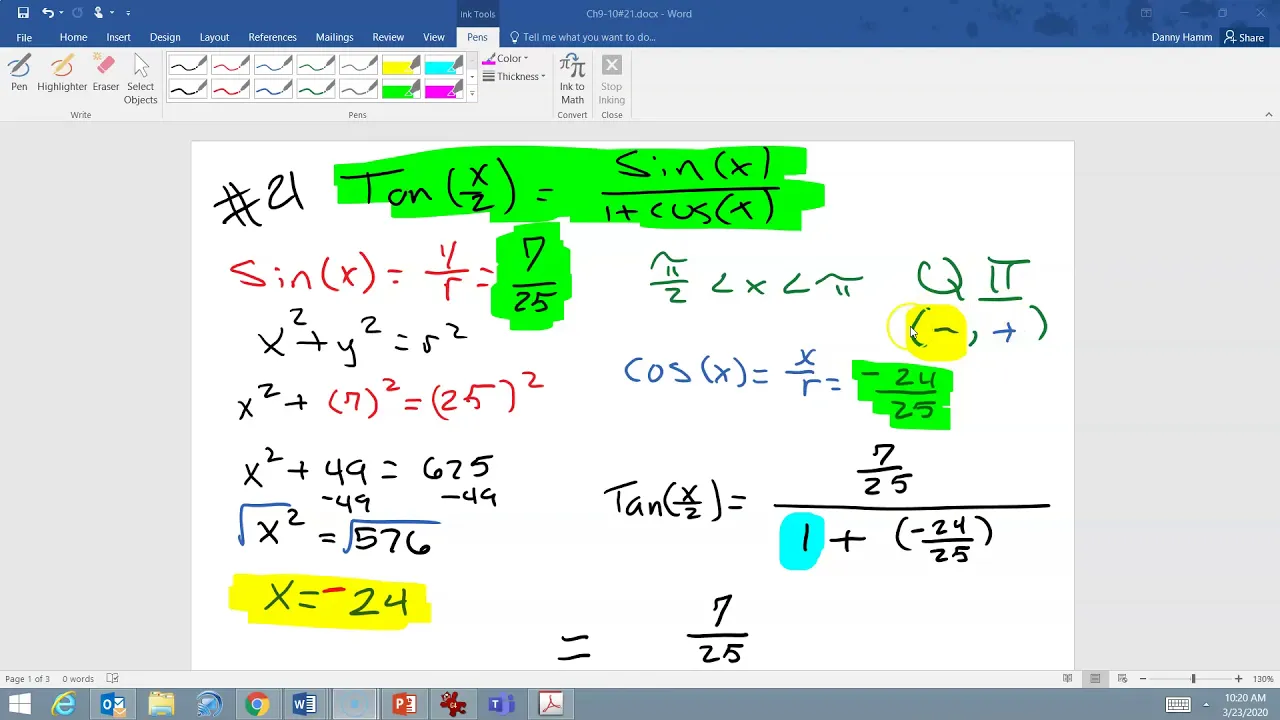 Ink Tools
Ch9-10#21.docx - Word
File Home Insert Design Layout References Mailings Review View Pens Tell me what you want to do...
Danny Hamm Share
Pen Highlighter Eraser Select Objects
Color
Thickness
Ink to Math
Stop Inking
Write Pens Convert Close
#21 Tan(x/2) = Sin(x)/(1+cos(x))
Sin(x) = y/r = 7/25
π/2 < x < π Q II
(-, +)
x² + y² = r²
cos(x) = x/r = -24/25
x² + (7)² = (25)²
x² + 49 = 625
-49 -49
Tan(x/2) = (7/25)/(1 + (-24/25))
√x² = √576
x = -24
= 7/25
Page 1 of 3 0 words
130%
10:20 AM
3/23/2020